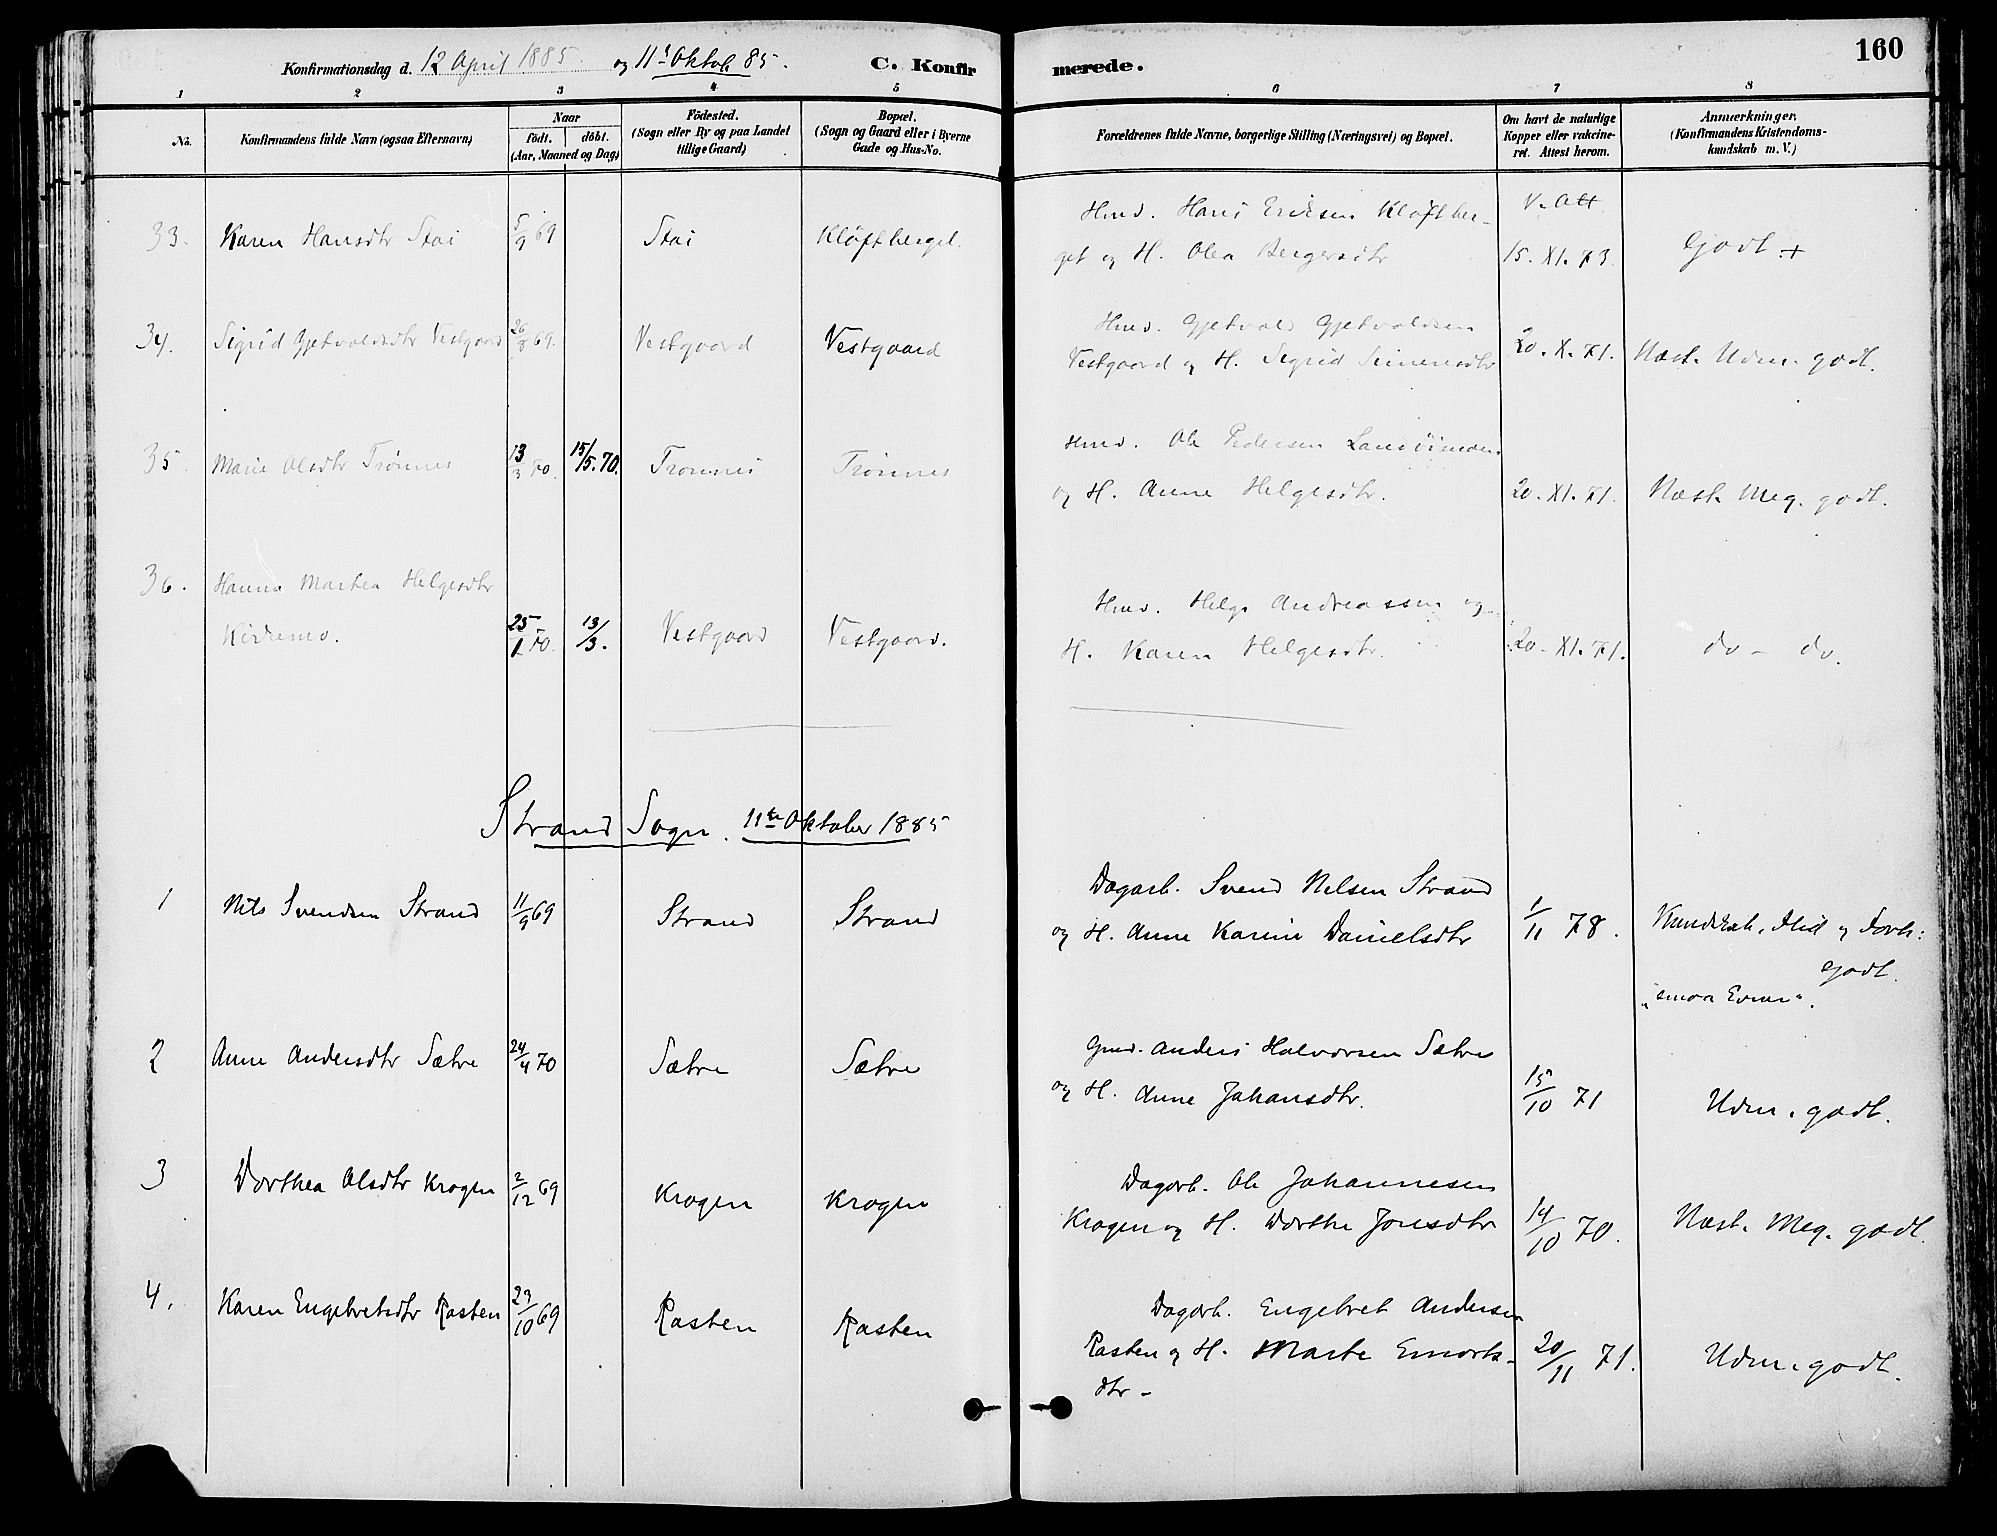 Konfirmationsdag d. 12 April 1885. og 11te Oktob. 85. C. Konfirmerede. 160
1 2 3 4 5 6 7 8
No. Konfirmandens fulde Navn (ogsaa Efternavn) Naar födt. döbt. (Aar, Maaned og Dag) Födested. (Sogn eller By og paa Landet tillige Gaard) Bopæl. (Sogn og Gaard eller i Byerne Gade og Hus-No. Forældrenes fulde Navne, borgerlige Stilling (Næringsvei) og Bopæl. Om havt de naturlige Kopper eller vakcineret. Attest herom. Anmærkninger. (Konfirmandens Kristendomskundskab m. V.)
33. Karen Hansdtr Stai 5/9 69 Stai Kløftberget. Hmd. Hans Eriksen Kløftber-
get og H. Olea Bergersdtr V. Att. 15. XI. 73. Godt +
34. Sigrid Gjetvoldsdtr Vestgaard 26/8 69. Vestgaard Vestgaard Hmd. Gjetvold Gjetvoldsen
Vestgaard og H. Sigrid Simensdtr 20. X. 71. Næst. Udm. godt.
35. Marie Olsdtr Trønnes 13/3 70. 15/5. 70. Trønnes Trønnes Hmd. Ole Pedersen
og H. Anne Helgesdtr. 20. XI. 71. Næst. Meg. godt.
36. Hanna Marthea Helgesdtr
Kirkemo. 25/1 70. 13/3. Vestgaard Vestgaard. Hmd. Helge Andreassen og
H. Karen Helgesdtr. 20. XI. 71. do - do.
Strand Sogn. 11te Oktober 1885
1 Nils Svendsen Strand 11/9 69 Strand Strand Dagarb. Svend Nilsen Strand
og H. Anne Karine Danielsdtr 1/11 78. Kundskab, Flid og Forh:
godt.
"smaa Evner".
2 Anne Andersdtr Sætre 24/4 70 Sætre Sætre Gmd. Anders Halvorsen Sætre
og H. Anne Johansdtr. 15/10 71 Udm. godt.
3 Dorthea Olsdtr Krogen 2/12 69 Krogen Krogen Dagarb. Ole Johannesen
Krogen og H. Dorthe Jonsdtr 14/10 70. Næst. Meg. godt.
4. Karen Engebretsdtr Rasten 23/10 69 Rasten Rasten Dagarb. Engebret Andersen
Rasten og H. Marte
dtr - 20/11 71. Udm. godt.